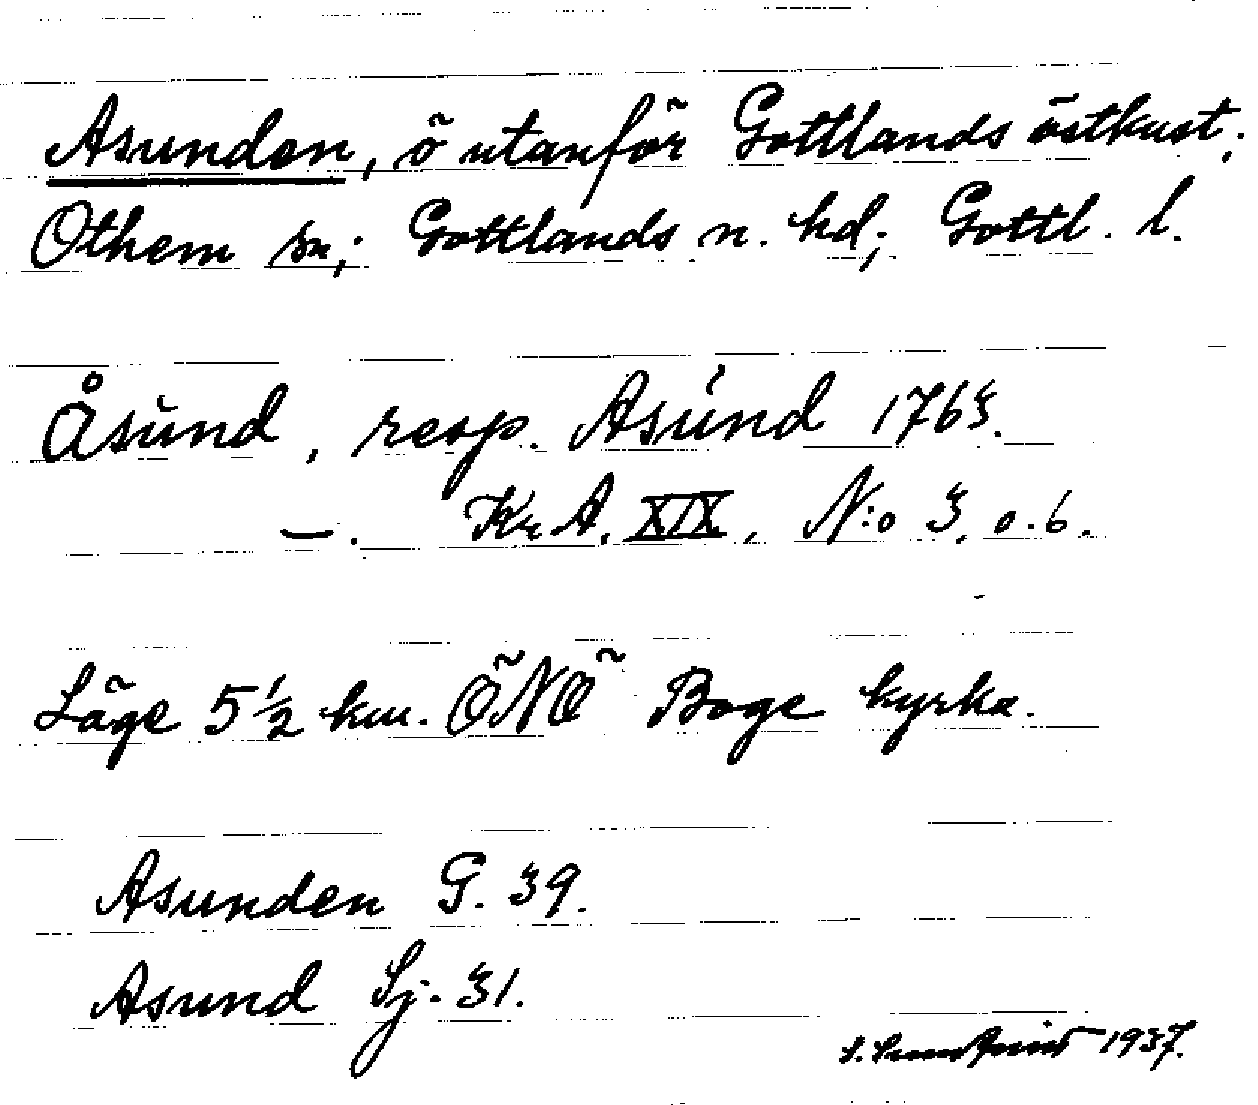 Asunden, ö utanför Gottlands östkust.
Othem sn; Gottlands n. hd; Gottl. l.
Åsund, resp. Asund 1763.
—. Kr. A. XIX, N:o 3, o. 6.
Läge 5 1/2 km. ÖNÖ Boge kyrka.
Asunden G. 39.
Asund Sj. 31.
1937.